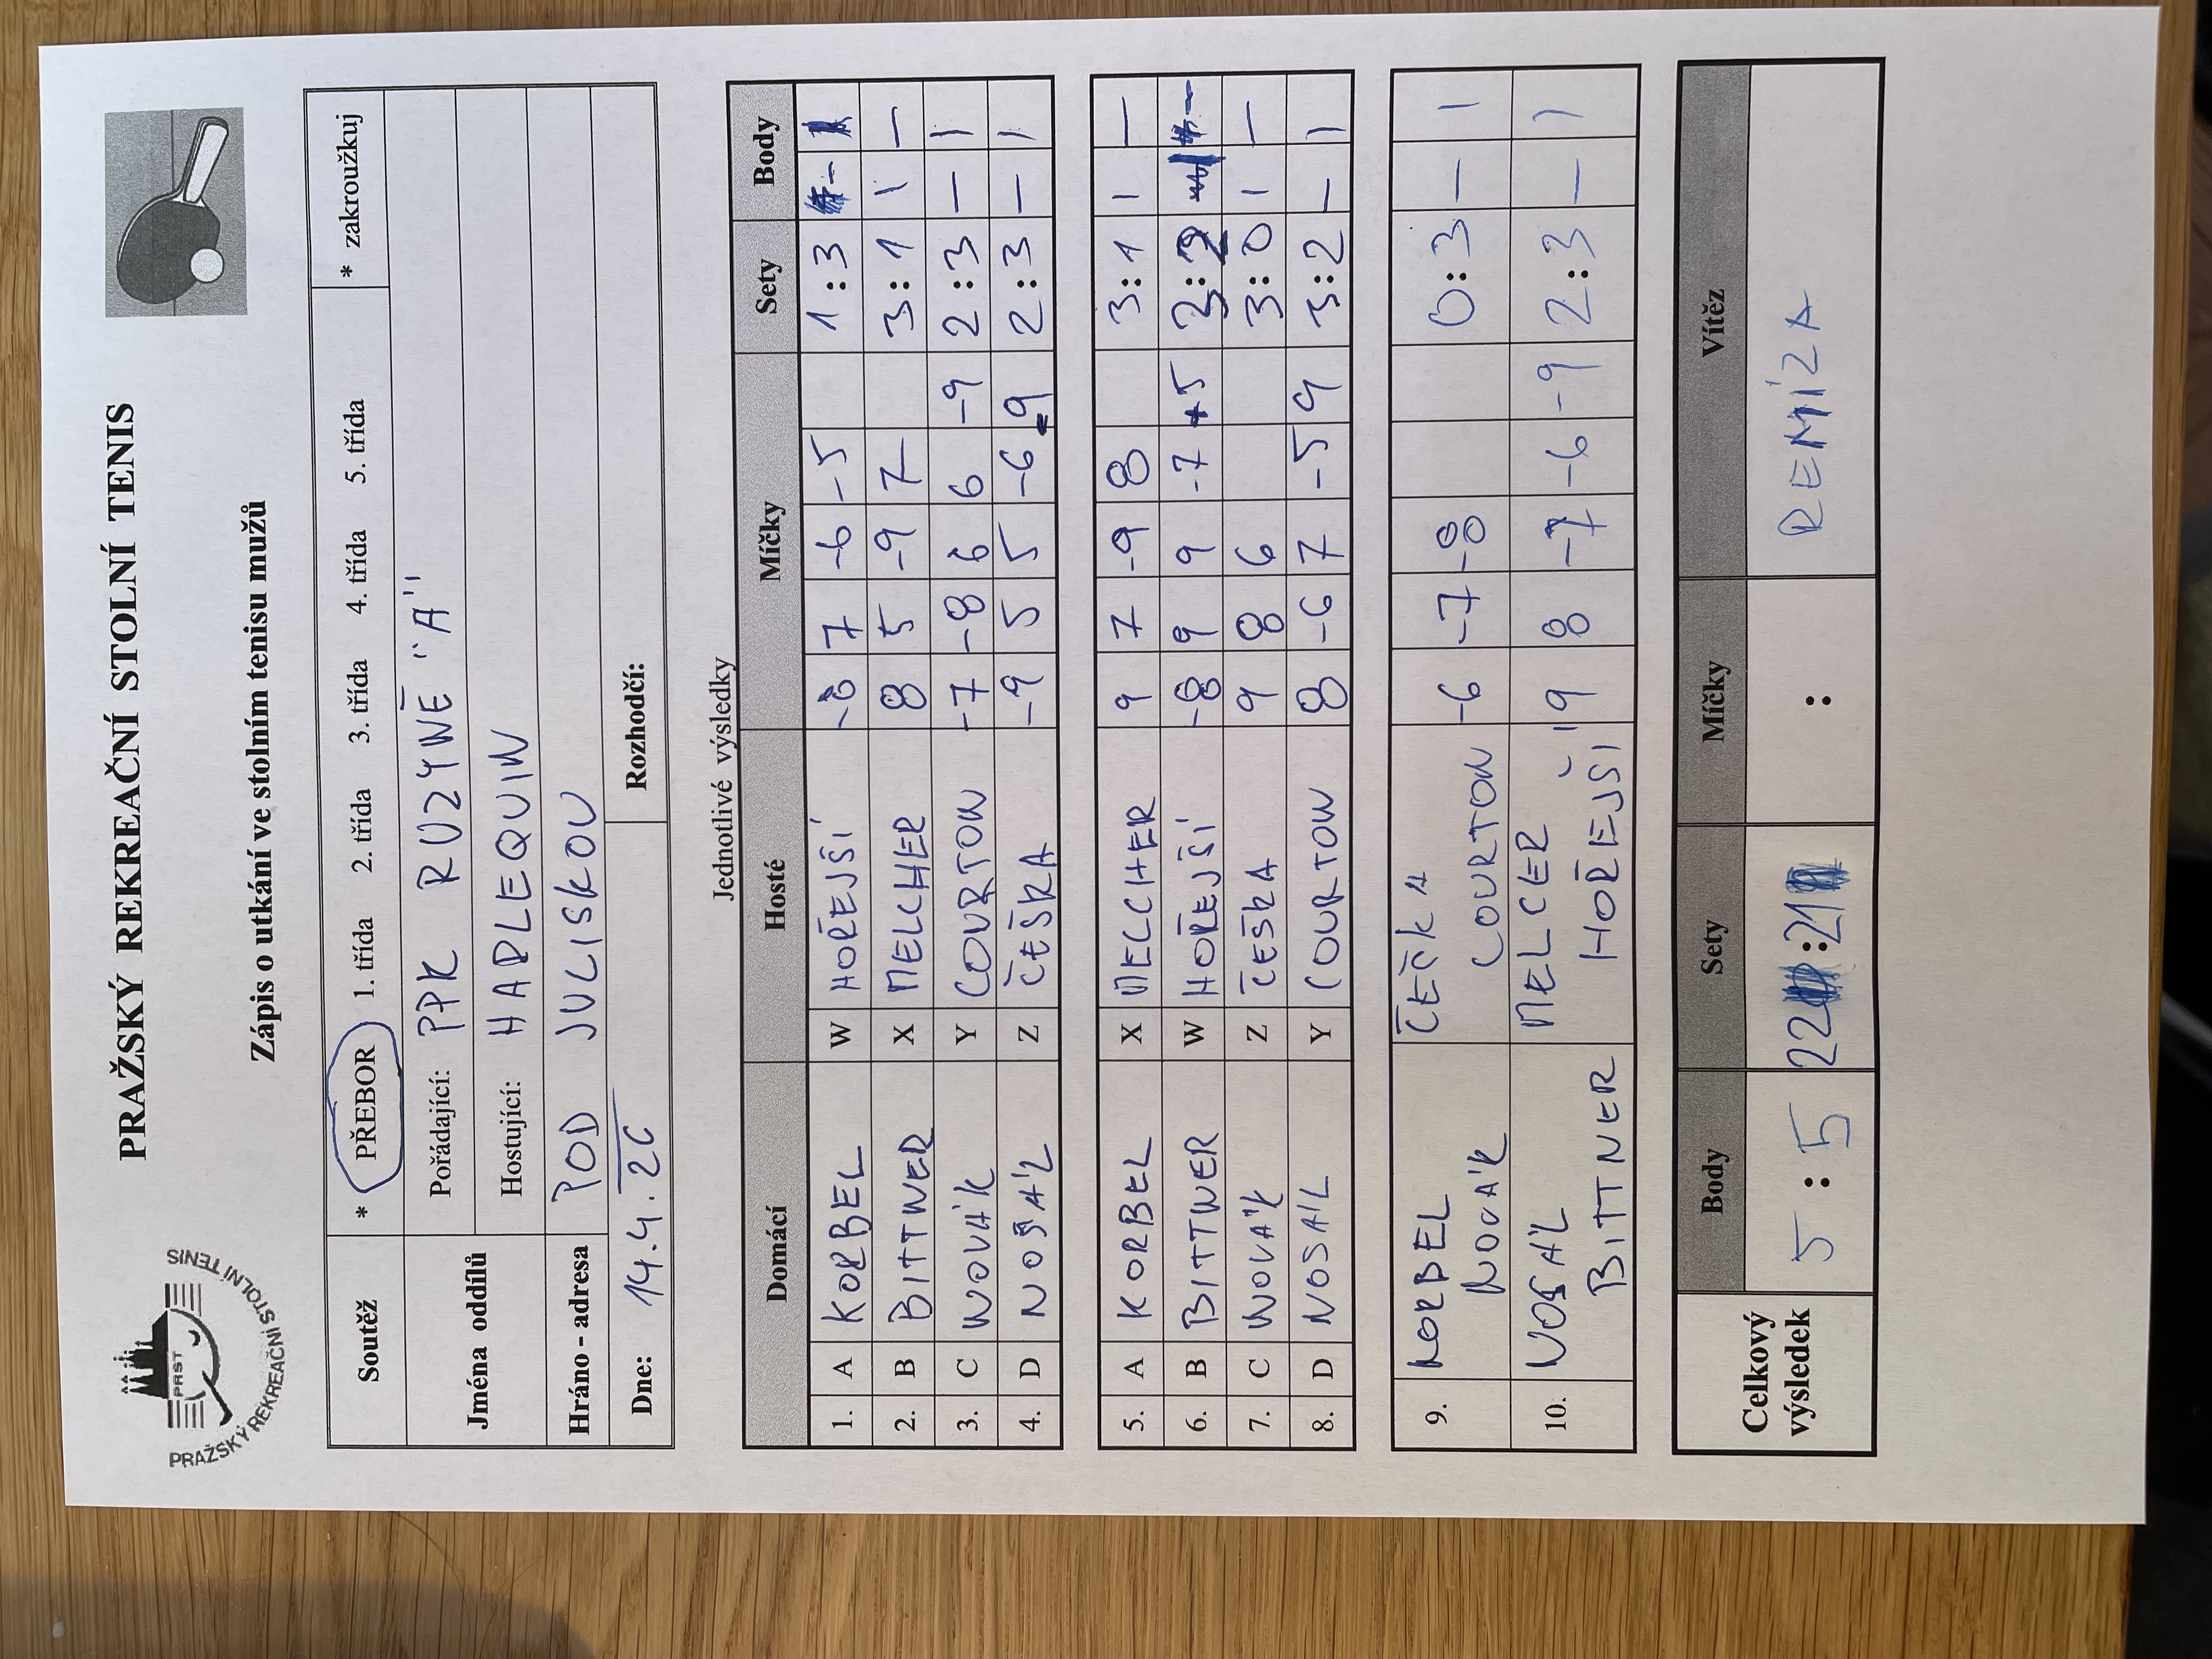 PRAŽSKÝ REKREAČNÍ STOLNÍ TENIS
PRST
PRAŽSKÝ REKREAČNÍ STOLNÍ TENIS
Zápis o utkání ve stolním tenisu mužů
Soutěž * PŘEBOR 1. třída 2. třída 3. třída 4. třída 5. třída * zakroužkuj
Jména oddílů Pořádající: PPK RUZYNĚ "A"
Hostující: HARLEQUIN
Hráno - adresa POD JULISKOU
Dne: 14.4. Rozhodčí:
Jednotlivé výsledky
Domácí Hosté Míčky Sety Body
1. A KORBEL W HOŘEJŠÍ -8 7 -6 -5 1 : 3 -
2. B BITTNER X MELCHER 8 5 -9 7 3 : 1 1 -
3. C NOVÁK Y COURTON -7 -8 6 6 -9 2 : 3 - 1
4. D NOSÁL Z ČEŠKA -9 5 5 -6 -9 2 : 3 - 1
5. A KORBEL X MELCHER 9 7 -9 8 3 : 1 1 -
6. B BITTNER W HOŘEJŠÍ -8 9 9 -7 5 3 : 2 -
7. C NOVÁK Z ČEŠKA 9 8 6 3 : 0 1 -
8. D NOSÁL Y COURTON 8 -6 7 -5 9 3 : 2 - 1
9. KORBEL NOVÁK COURTON -6 -7 -8 0 : 3 - 1
10. NOSÁL BITTNER MELCER HOŘEJŠÍ 9 8 -7 -6 -9 2 : 3 - 1
Celkový výsledek Body Sety Míčky Vítěz
5 : 5 22 : 21 : REMÍZA